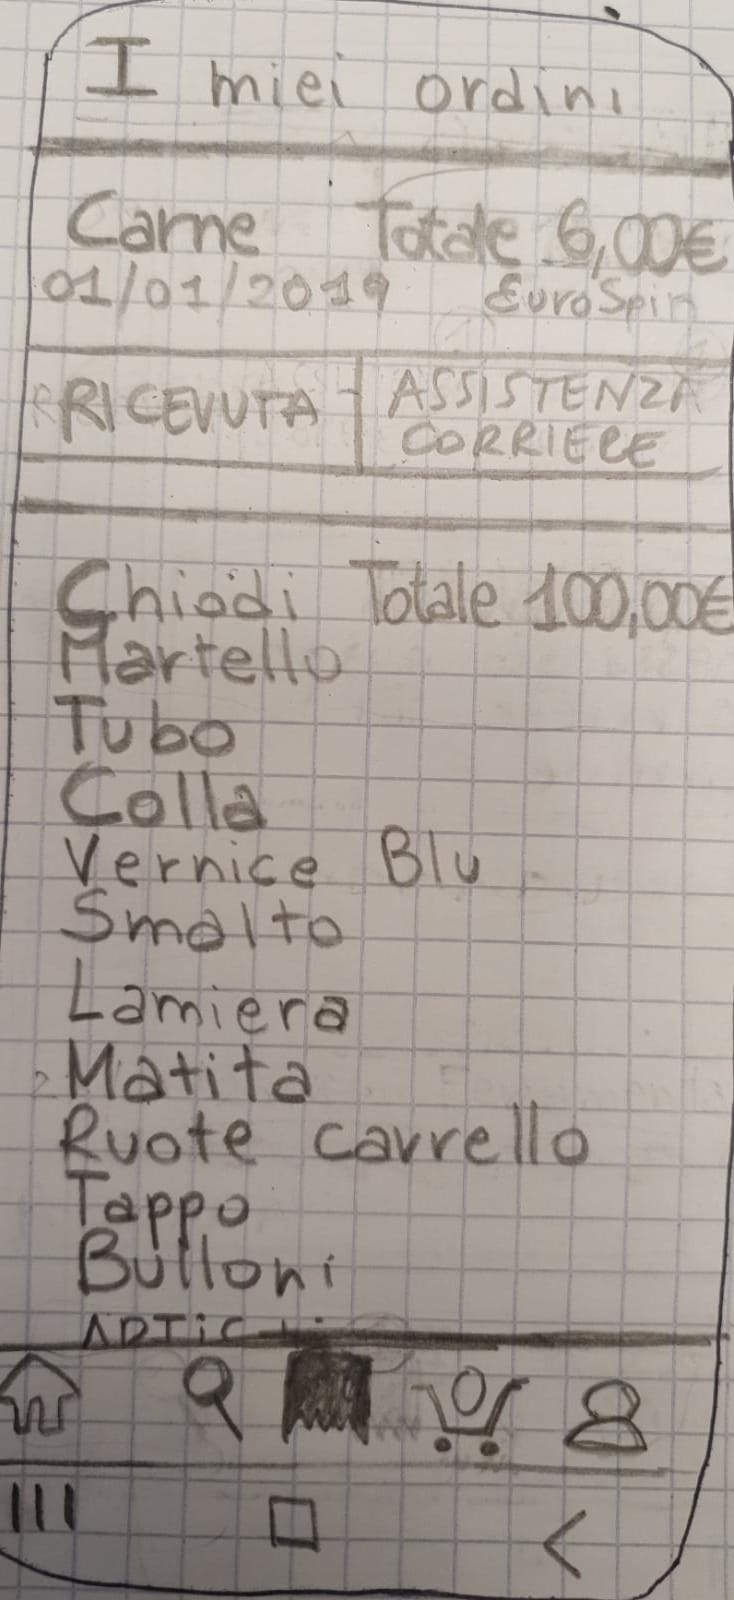 I miei ordini
Carne Totale 6,00€
01/01/2019 EuroSpin
RICEVUTA ASSISTENZA
CORRIERE
Chiodi Totale 100,00€
Martello
Tubo
Colla
Vernice Blu
Smalto
Lamiera
Matita
Ruote carrello
Tappo
Bulloni